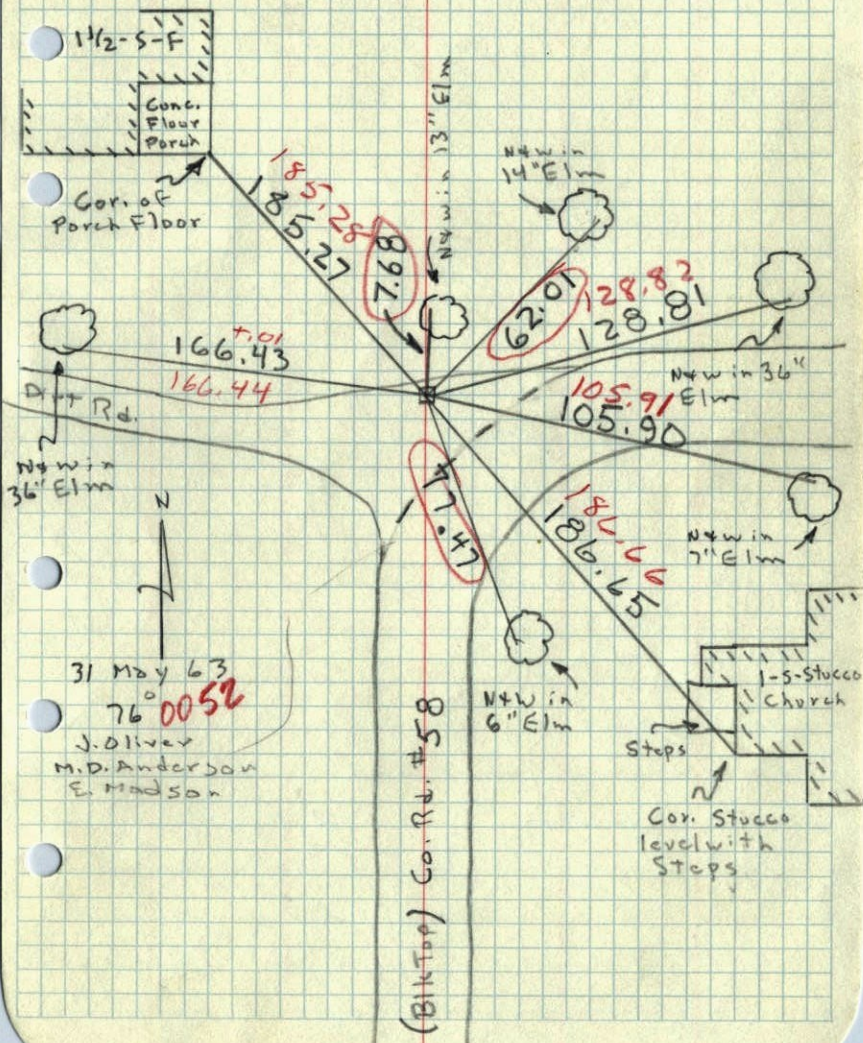 1½-S-F
Conc.
Floor
Porch
Cor. of
Porch Floor
185.28
185.27
7.68
N&W in 13" Elm
N&W in
14" Elm
62.01
128.82
128.81
N&W in 36"
Elm
+.01
166.43
166.44
Dirt Rd.
N&W in
36" Elm
105.91
105.90
N&W in
7" Elm
77.47
186.66
186.65
N&W in
6" Elm
N
31 May 63
76° 0052
J. Oliver
M.D. Anderson
E. Madson
1-S-Stucco
Church
Steps
Cor. Stucco
level with
Steps
(BlkTop) Co. Rd. #58